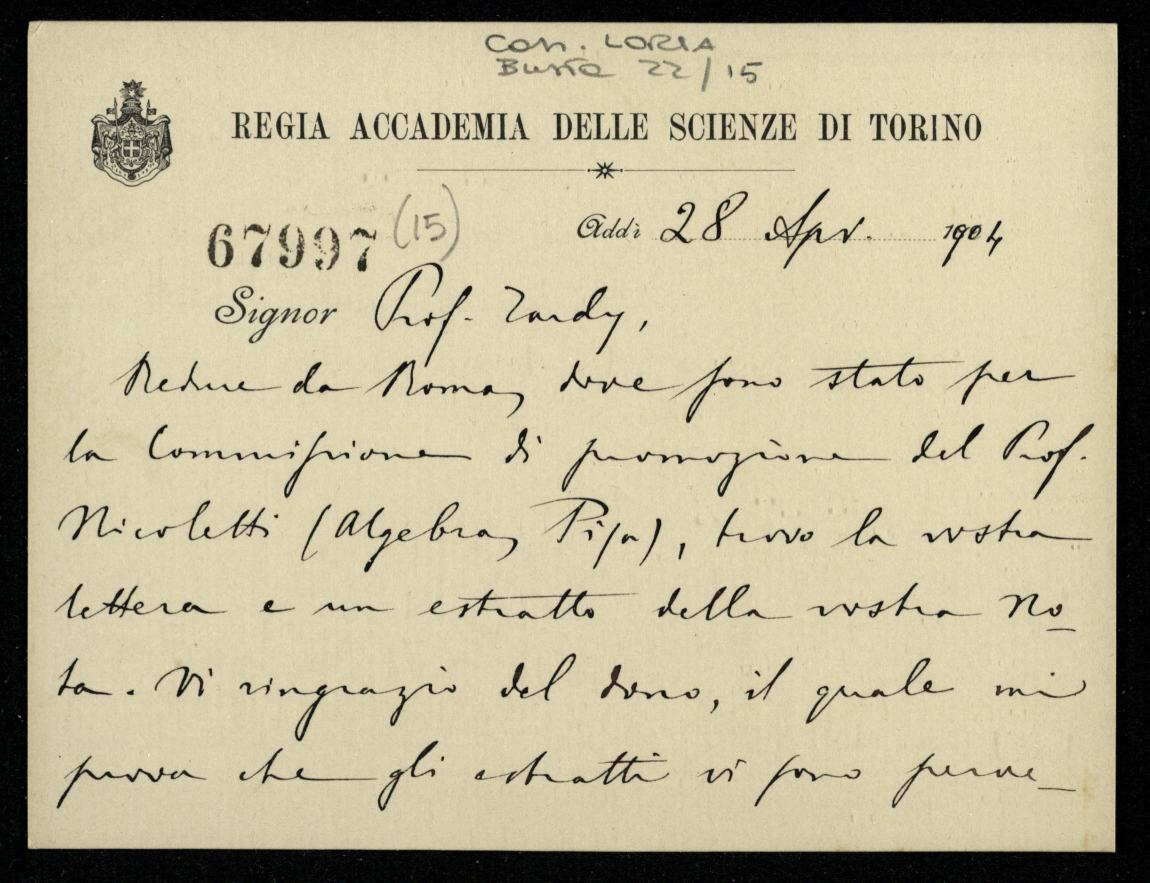 Coll. LORIA
Busta 22/15
REGIA ACCADEMIA DELLE SCIENZE DI TORINO
67997 (15)
Addì 28 Apr. 1904
Signor Prof. Tardy,
Redue da Roma, dove sono stato per
la Commissione di promozione del Prof.
Nicoletti (Algebra, Pisa), trovo la vostra
lettera e un estratto della vostra No_
ta. Vi ringrazio del dono, il quale mi
prova che gli estratti vi sono perve_